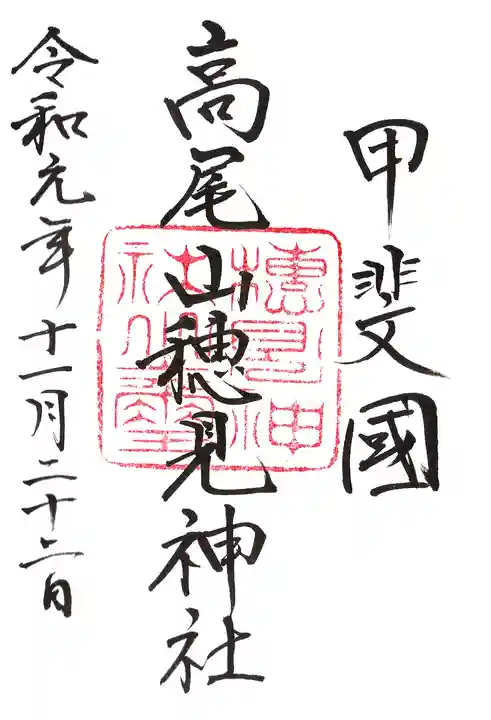 甲斐國
高尾山穂見神社
令和元年十一月二十二日
穂見神
社之璽